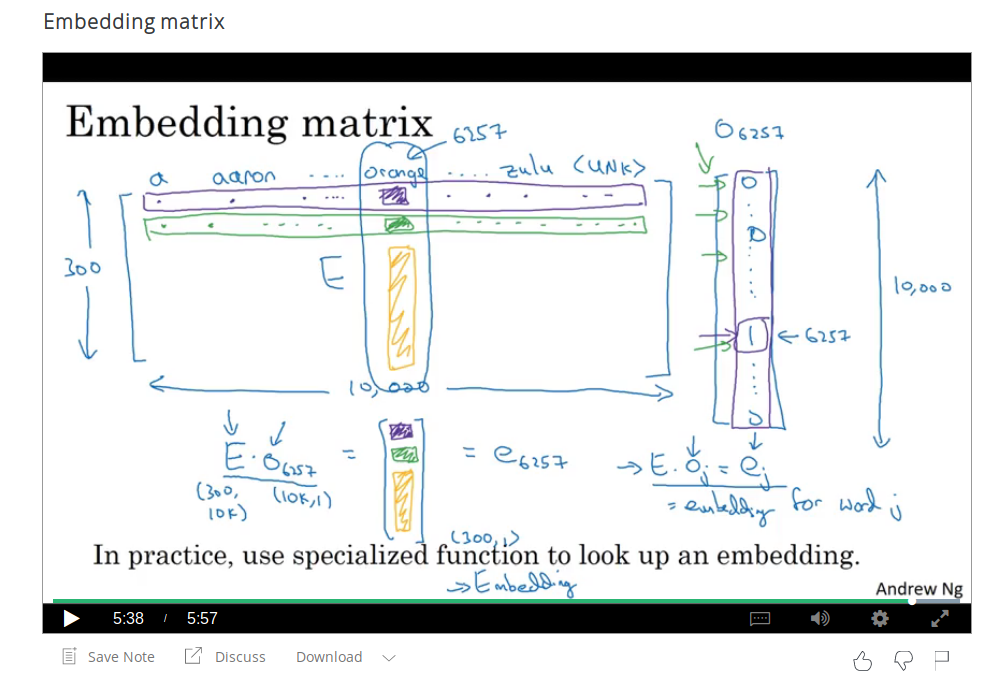 Embedding matrix
Embedding matrix
6257
O6257
a aaron .... orange .... zulu <UNK>
0
0
300
E
10,000
1 ← 6257
10,000
0
E · O6257 = = e6257
→ E · Oj = ej
(300, 10K) (10K, 1)
= embedding for word j
(300, 1)
In practice, use specialized function to look up an embedding.
→ Embedding
Andrew Ng
5:38 / 5:57
Save Note Discuss Download